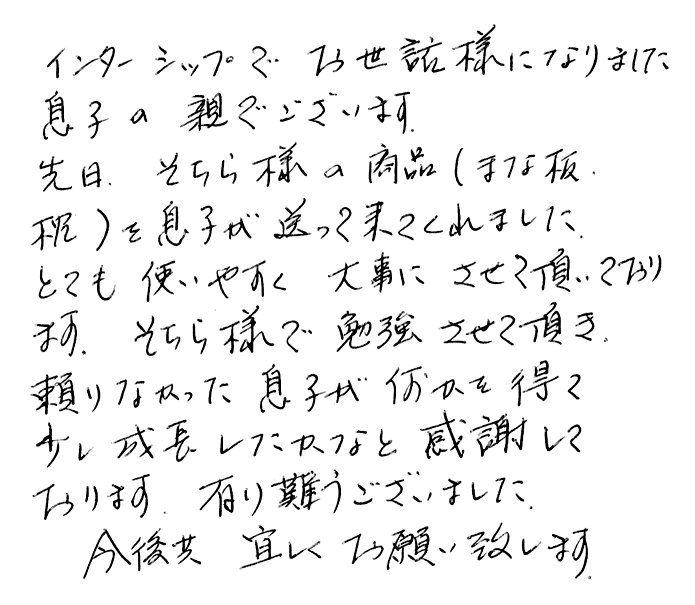 インターシップで お世話様になりました
息子の 親でございます.
先日. そちら様の 商品(まな板.
枕)を息子が 送って来てくれました.
とても 使いやすく 大事に させて頂いており
ます. そちら様で 勉強 させて頂き.
頼りなかった 息子が 何かを 得て
少し成長 したかなと 感謝して
おります. 有り難うございました.
今後共 宜しく お願い致します.